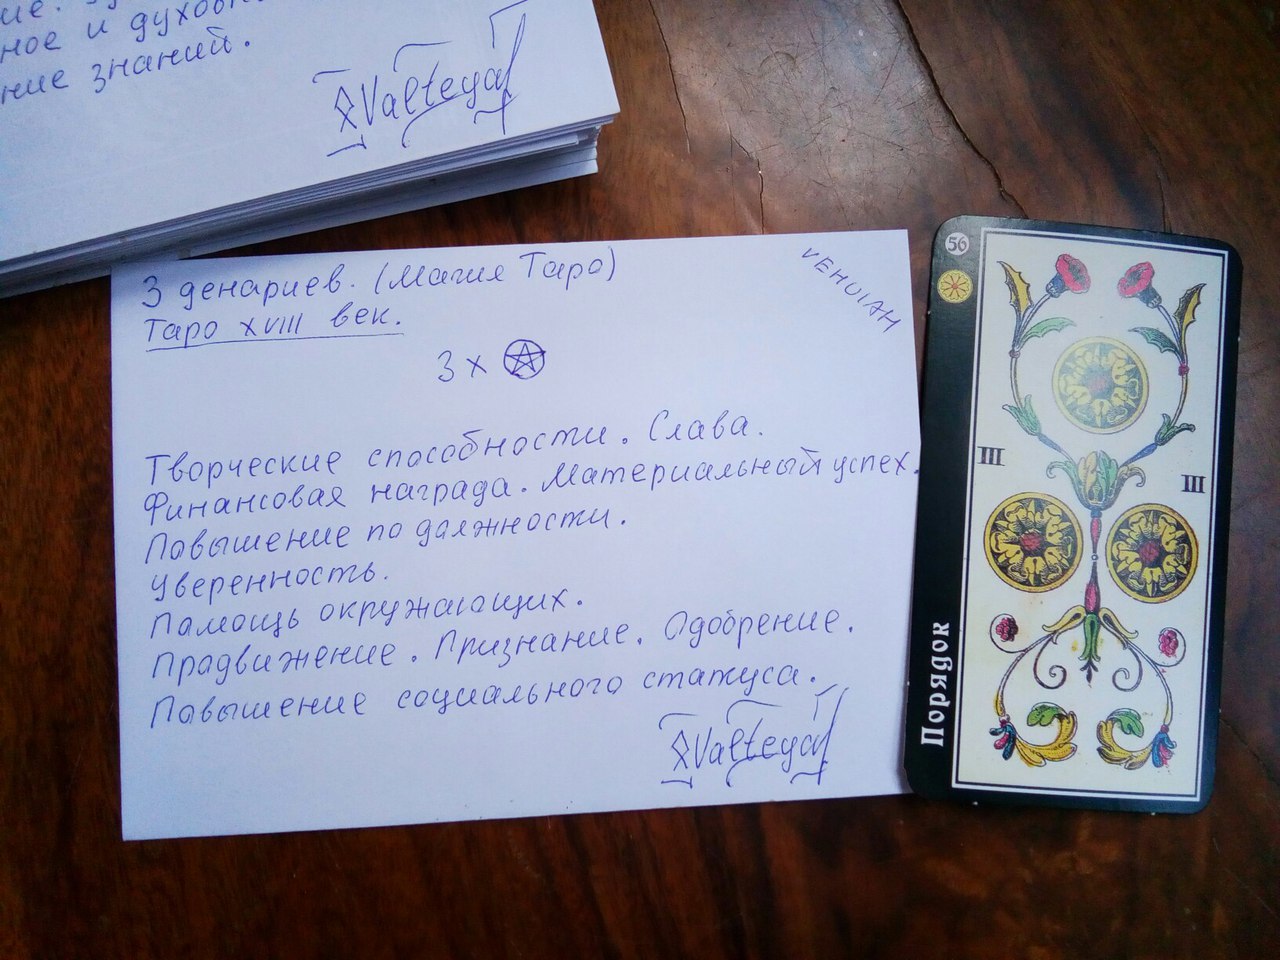 ие.
ное и духов
ние знаний.
Valteya
3 денариев. (Магия Таро)
Таро XVIII век.
VEHUIAH
3 x
Творческие способности. Слава.
Финансовая награда. Материальный успех.
Повышение по должности.
Уверенность.
Помощь окружающих.
Продвижение. Признание. Одобрение.
Повышение социального статуса.
Valteya
56
III
III
Порядок